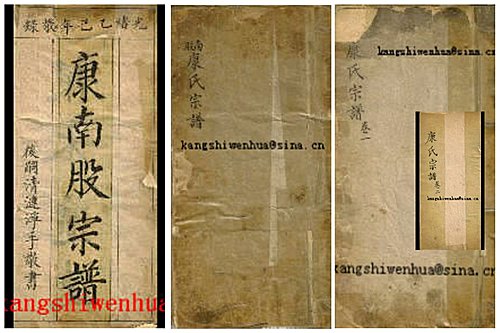 光緒乙巳年敬錄
康南股宗譜
後嗣清漣淨手敬書
kangshiwenhua
南股
康氏宗譜
kangshiwenhua@sina.cn
kangshiwenhua@sina.cn
康氏宗譜卷一
康氏宗譜卷二
kangshiwenhua@sina.cn
kangshiwenhua@sina.cn